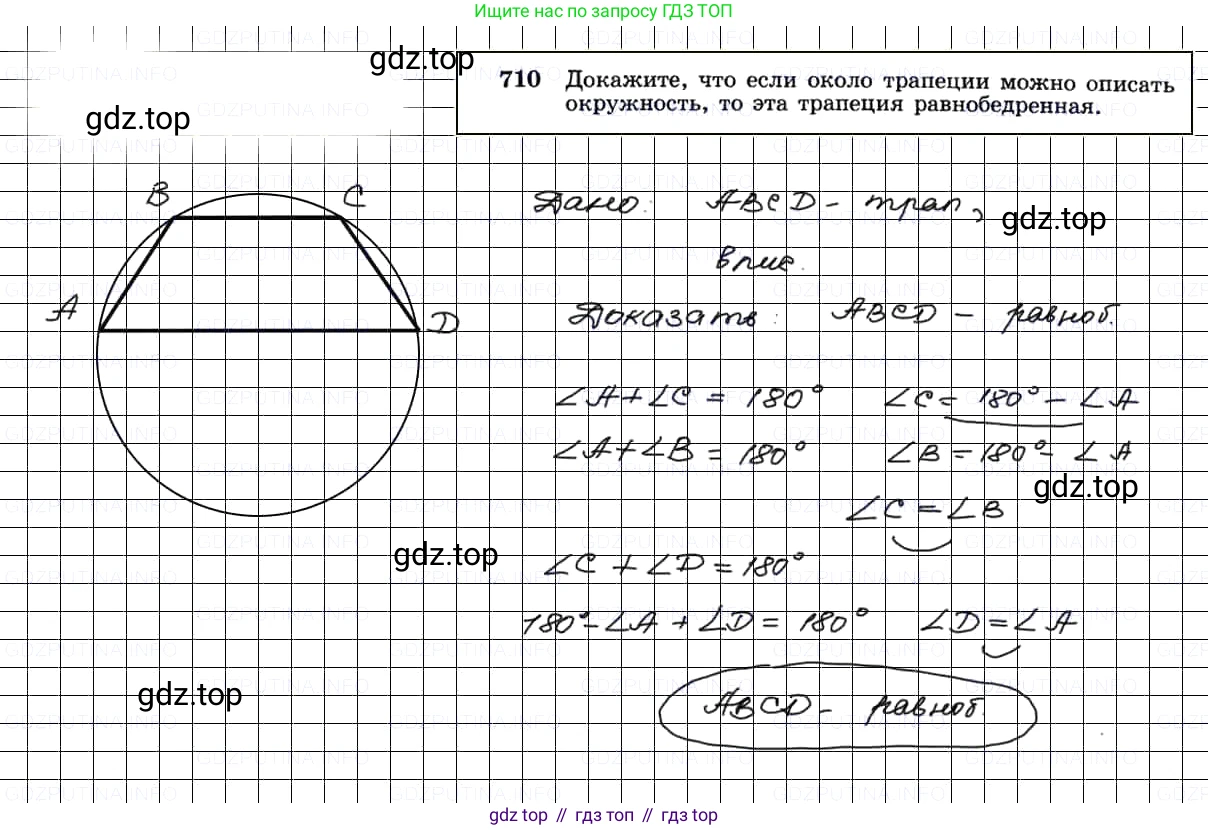 Ищите нас по запросу ГДЗ ТОП
gdz.top
710 Докажите, что если около трапеции можно описать
окружность, то эта трапеция равнобедренная.
gdz.top
B C
Дано: ABCD - трап,
gdz.top
впис.
A D
Доказать: ABCD - равноб.
∠A+∠C = 180° ∠C = 180° - ∠A
∠A+∠B = 180° ∠B = 180° - ∠A
gdz.top
∠C = ∠B
gdz.top
∠C + ∠D = 180°
180° - ∠A + ∠D = 180° ∠D = ∠A
gdz.top
ABCD - равноб.
gdz top // гдз топ // гдз top
GDZPUTINA.INFO